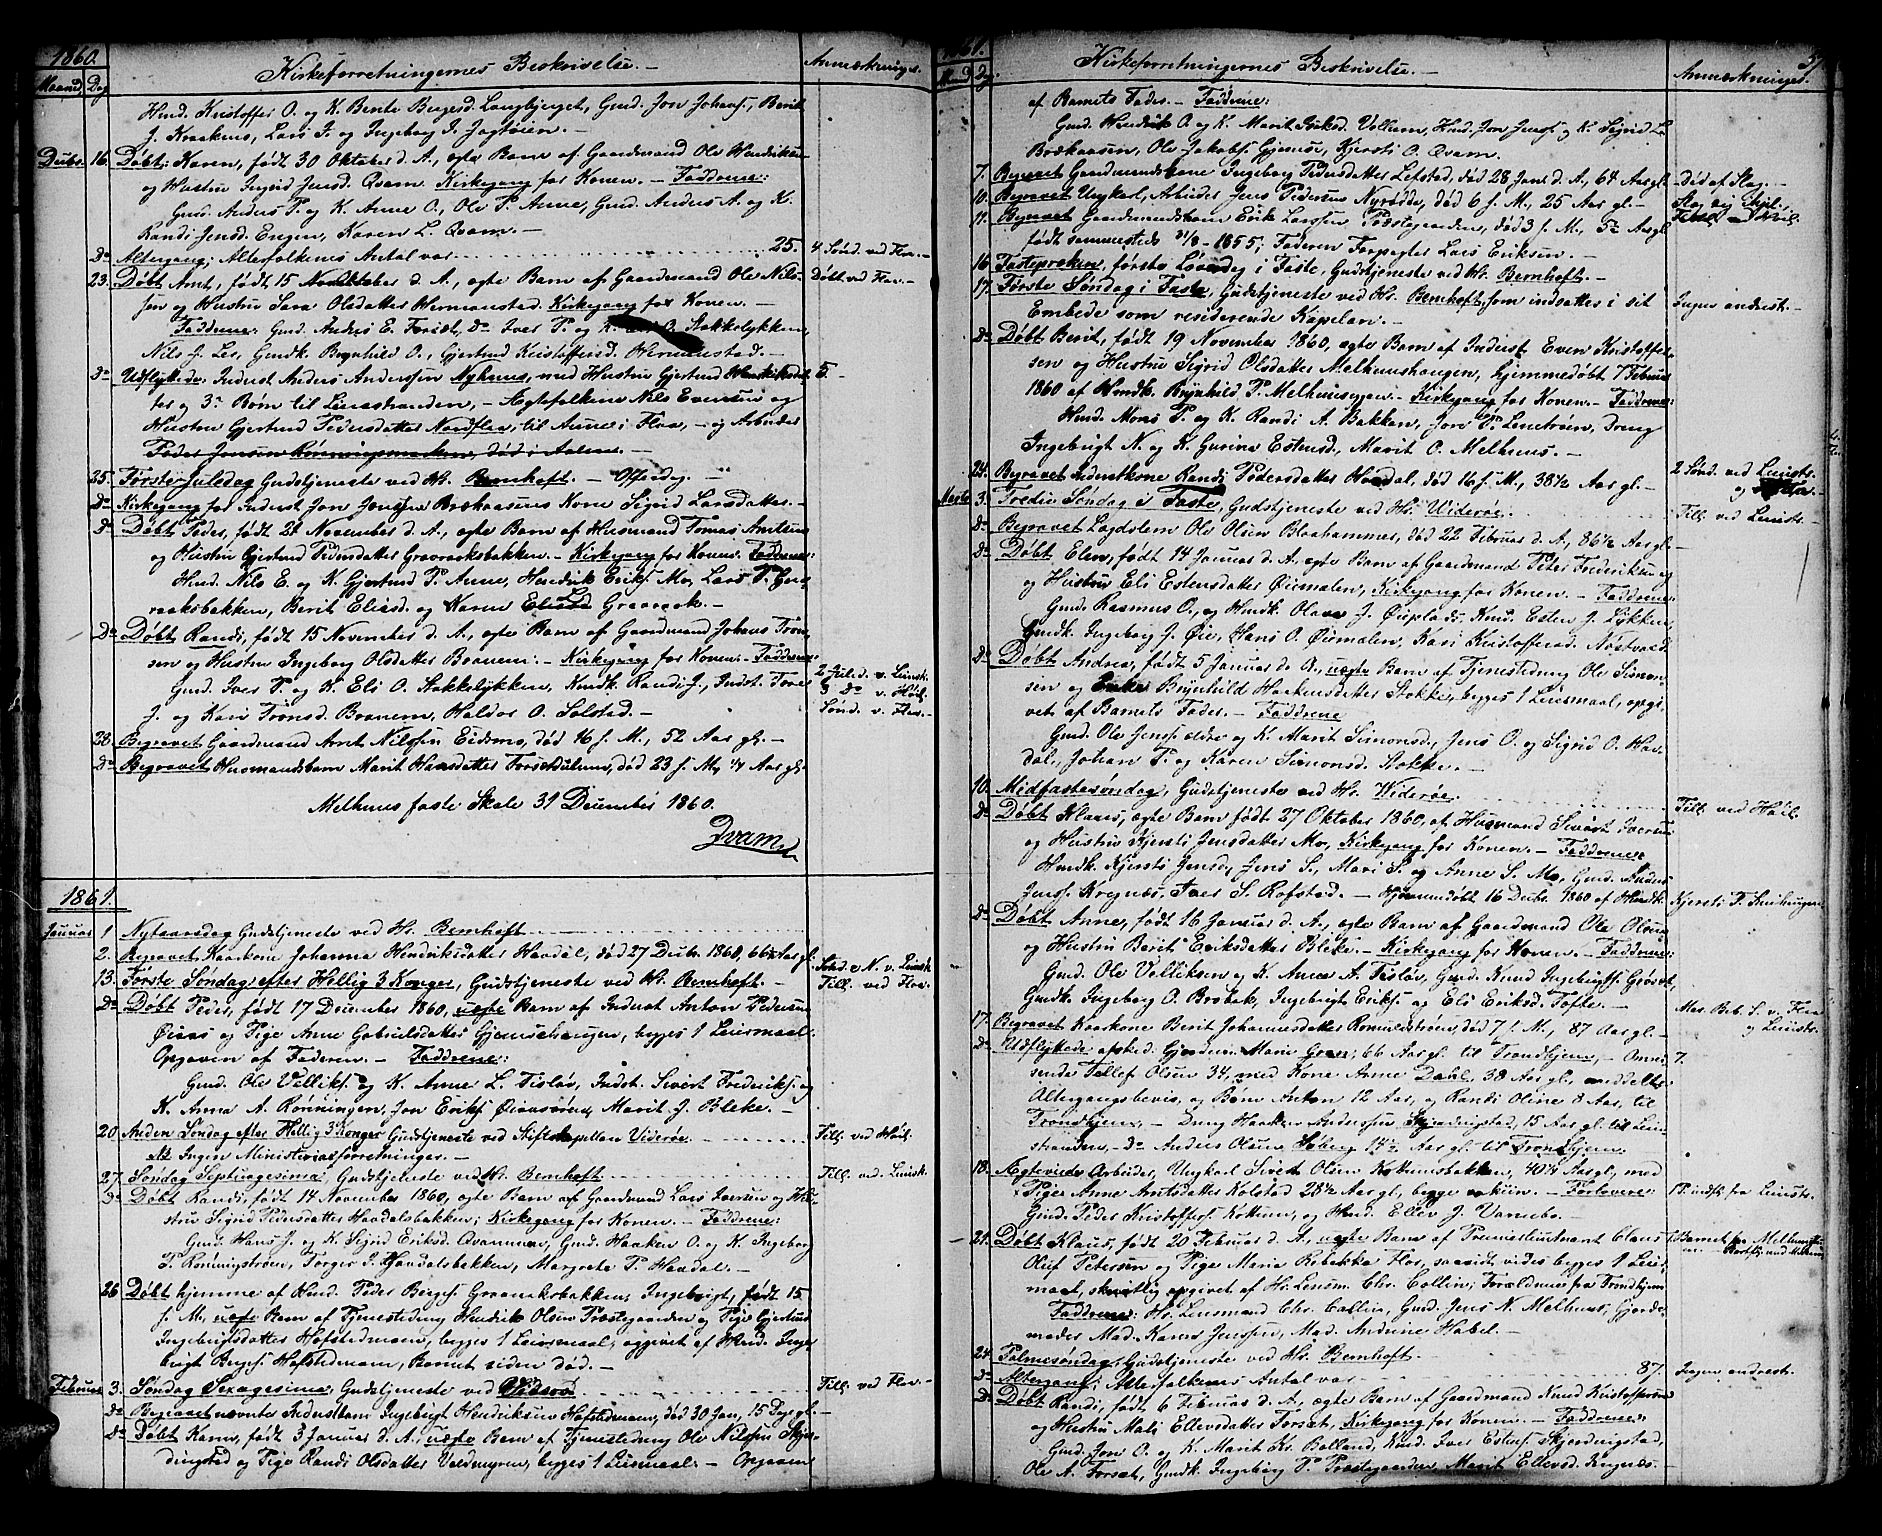 1860.
Maaned, Dag
Kirkeforretningernes Beskrivelse. —
Anmærkninger.
Husd. Kristoffer O. og K. Bente Bergesd. Langbjerget, Gmd. Jon Johans., Berit
J. Kraakens, Lars J. og Ingeborg J. Jagtøien. —
Decbr. 16. Døbt: Karen, født 30 Oktober d. A., ægte Barn af Gaardmand Ole Hendriksen
og Hustru Ingrid Jensd. Qvam. Kirkegang for Konen. — Fadderne:
Gmd. Anders P. og K. Anne O., Ole P. Anne, Gmd. Anders A. og K.
Randi Jensd. Engen, Karen L. Qvam. —
Do Altergang; Alterfolkenes Antal var 25. 4 Sønd. ved Flaa. —
23. Døbt Arnt, født 15 Oktober d. A., ægte Barn af Gaardmand Ole Nils- Døbt ved Flaa. —
sen og Hustru Sara Olsdatter Hermanstad. Kirkegang for Konen. —
Fadderne: Gmd. Anders E. Forsæt, do Iver P. og K. O. Stokkelykken,
Nils J. Ler, Gmdk. Brynhild O., Gjertrud Kristoffersd. Hermanstad. —
Do Udflyttede, Inderst Anders Anderssen Nyhuus, med Hustru Gjertrud Henriksdat- 5.
ter og 3 Børn til Leinstranden, — Ægtefolkene Nils Evensen og
Hustru Gjertrud Pedersdatter Nordflaa, til Anne i Flaa, — og Arbeider
Peder Jensen Rønningsmarken, død i Aalen. —
25. Første Juledag Gudstjeneste ved Hr. Bernhoft. — Offerdag. —
Do Kirkegang for Inderst Jon Jensen Brækaasens Kone Sigrid Larsdatter. —
Do Døbt Peder, født 21 November d. A., ægte Barn af Husmand Tomas Arntsen
og Hustru Gjertrud Pedersdatter Graaraksbakken. — Kirkegang for Konen. Fadderne:
Husd. Nils E. og K. Gjertrud P. Anne, Hendrik Eriks. Mo, Lars P. Gra-
raaksbakken, Berit Eliasd. og Karen Eliasd. Graaraak. —
Do Døbt Randi, født 15 November d. A., ægte Barn af Gaardmand Johans Trøn-
sen og Hustru Ingeborg Olsdatter Braanem. — Kirkegang for Konen. — Fadderne:
Gmd. Iver P. og K. Eli O. Stokkelykken, Kmdk. Randi J., Indst. Tore 2 Juled. v. Leinst.
J. og Kari Trønsd. Braanem, Haldor O. Solstad. — Sønd. v. Flaa. —
28. Begravet Gaardmand Arnt Nilssen Eidsmo, død 16 f. M., 52 Aar gl. —
Do Begravet Husmandsbarn Marit Hansdatter, død 23 f. M., 1/4 Aar gl. —
Melhuus faste Skole 31 December 1860.
Qvam
1861.
Januar 1. Nytaarsdag Gudstjeneste ved Hr. Bernhoft
2. Begravet Kaarkone Johanna Hendriksdatter Hovdal, død 27 Decbr. 1860, 66 1/2 Aar gl.
13. Første Søndag efter Hellig 3 Konger, Gudstjeneste ved Hr. Bernhoft. — Till. ved Flaa.
Do Døbt Peder, født 17 December 1860, uægte Barn af Inderst Anton Pedersen
Øiaas og Pige Anne Gabrielsdatter Gjemsehaugen, begges 1 Leiermaal
Opgaven af Faderen. — Fadderne:
Gmd. Ole Velliks. og K. Anne L. Tisløv, Indst. Sivert Frederiks. og
K. Anna A. Rønningen, Jon Eriks. Øiaasøren, Marit J. Bleke. —
20. Anden Søndag efter Hellig 3 Konger Gudstjeneste ved Stiftskapellan Viderøe. Till. ved Høil.
NB Ingen Ministerialforretninger. —
27. Søndag Septuagesima, Gudstjeneste ved Hr. Bernhoft Till. ved Leinst.
Do Døbt Randi, født 14 November 1860, ægte Barn af Gaardmand Lars Iversen og Hu-
stru Sigrid Pedersdatter Havdalsbakken; Kirkegang for Konen. — Fadderne:
Gmd. Hans J. og K. Sigrid Eriksd. Qvammen, Gmd. Haaken O. og K. Ingeborg
T. Rønningstrøen, Torger J. Havdalsbakken, Margrete P. Havdal. —
26. Døbt hjemme af Kmd. Peder Berges. Graaraksbakken, Ingebrigt, født 15
f. M., uægte Barn af Tjenestedreng Hendrik Olsen Præstegaarden og Pige Gjertrud
Ingebrigtsdatter Hofstedmoen, begges 1 Leiermaal; opgivet af Husd. Inge-
brigt Berges. Hofstedmoen, Barnet siden død. —
Februar 3. Søndag Sexagesima, Gudstjeneste ved Viderøe Till. ved Flaa. —
Do Begravet nævnte Inderstbarn Ingebrigt Hendriksen Hofstedmoen, død 30 Jan., 15 Dage gl. —
Do Døbt Karen, født 3 Januar d. A., uægte Barn af Tjenestedreng Ole Nilssen Skjer-
dingstad og Pige Randi Olsdatter Valdmyren, begges 1 Leiermaal. — Opgaven
Kirkeforretningernes Beskrivelse. —
Anmærkninger.
af Barnets Fader. — Fadderne:
Gmd. Hendrik O. og K. Marit Velkem, Husd. Jon Jens. og K. Sigrid L.
Brækaasen, Ole Jakobs. Gjemse, Kjersti O. Qvam.
7. Begravet Gaardmandskone Ingeborg Pedersdatter Lefstad, død 28 Janr. d. A., 64 Aar gl. — Død af Slag. —
10. Begravet Ungkarl, Arbeider Jens Pedersen Nyrødde, død 6 f. M., 25 Aar gl. —
11. Begravet Gaardmandsbarn Erik Larssen Præstegaarden, død 3 f. M., 5 1/2 Aar gl.
født sammesteds 31/8 1855; Faderen Forpagter Lars Eriksen. —
16. Fasteprøken, første Løverdag i Faste, Gudstjeneste ved Hr. Bernhoft. —
17. Første Søndag i Faste, Gudstjeneste ved Hr. Bernhoft, som indsattes i sit Ingen andrest. —
Embede som residerende Kapelan. —
Do Døbt Berit, født 19 November 1860, ægte Barn af Inderst Even Kristoffer-
sen og Hustru Sigrid Olsdatter Melhuushaugen, hjemmedøbt 7 Februar
1860 af Hmdk. Brynhild P. Melhuusøien. — Kirkegang for Konen. — Fadderne:
Husd. Mons P. og K. Randi A. Bakken, Jon P. Lenetrøen, Dreng
Ingebrigt N. og K. Gurine Estensd., Marit O. Melhuus. —
24. Begravet Inderstkone Randi Pedersdatter Hovdal, død 16 f. M., 38 1/2 Aar gl. — 2 Sønd. ved Leinst.
og Flaa. —
Marts 3. Tredie Søndag i Faste, Gudstjeneste ved Hr. Widerøe. Till. ved Leinst. —
Do Begravet Lægdslem Ole Olsen Blaahammer, død 22 Februar d. A., 86 1/2 Aar gl. —
Do Døbt Elen, født 14 Januar d. A., ægte Barn af Gaardmand Peter Frederiksen
og Hustru Eli Estensdatter Øiemalen, Kirkegang for Konen. — Fadderne:
Gmd. Rasmus O., og Hmdk. Olava J. Øieplads, Kmd. Esten J. Lykken,
Gmdk. Ingeborg J. Øie, Hans O. Øiemalen, Kari Kristoffersd. Nøstvold.
Do Døbt Andrea, født 5 Januar d. A., uægte Barn af Tjenestedreng Ole Simon-
sen og Enke Brynhild Haakensdatter Stokke, begges 1 Leiermaal, opgi-
vet af Barnets Fader. — Fadderne
Gmd. Ole Jens. ældre og K. Marit Simonsd., Jens O. og Sigrid O. Hav-
dal, Johan P. og Karen Simonsd. Stokke. —
10. Midfastesøndag, Gudstjeneste ved Hr. Widerøe. Till. ved Høil.
Do Døbt Klaus, ægte Barn født 27 Oktober 1860, af Husmand Sivert Iversen
og Hustru Kjersti Jensdatter Mo, Kirkegang for Konen. — Fadderne:
Hmdk. Kjersti Jensd., Jens S., Mari S. og Anne S. Mo, Gmd. Anders
Jens. Kregnæs, Iver S. Rofstad. — Hjemmedøbt 16 Decbr. 1860 af Hmdk. Kjersti
Do Døbt Anne, født 16 Januar d. A., ægte Barn af Gaardmand Ole Olsen
og Hustru Berit Eriksdatter Bleke. — Kirkegang for Konen. — Fadderne:
Gmd. Ole Velliksen og K. Anne A. Tisløv, Gmd. Knud Ingebrigts. Grøvset,
Gmdk. Ingeborg O. Brobak, Ingebrigt Eriks. og Eli Eriksd. Tofte. —
17. Begravet Kaarkone Berit Johannesdatter Romuldstrøen, død 7 f. M., 87 Aar gl. — Mar. Beb. S. v. Flaa
og Leinst.
Do Udflyttede afsked. Gjordem. Marie Gran, 66 Aar gl. til Trondhjem, — Omrei- 7.
sende Tellef Olsen 34, med Kone Anne Dahl, 38 Aar gl., meddelte
Altergangsbevis, og Børn Anton 12 Aar, og Randi Oline 8 Aar, til
Trondhjem. — Dreng Haaken Andersen Skjerdingstad, 15 Aar gl. til Lein-
stranden, — do Anders Olsen Søberg 14 1/2 Aar gl. til Trondhjem.
18. Ægteviede Arbeider, Ungkarl Sivert Olsen Kottumsbakken, 40 1/2 Aar gl., med
Pige Anne Arntsdatter Kolstad 28 1/2 Aar gl., begge vakcin. — Forlovere: P. indfl. fra Leinst.
Gmd. Peder Kristoffers. Kottum, og Husd. Ellev J. Varmbo. —
21. Døbt Klaus, født 20 Februar d. A., uægte Barn af Premierlieutnant Claus Barnet fra Melhuus
Oluf Petersen og Pige Maria Rebekka Flor, saavidt vides begges 1 Leier-
maal, skriftlig opgivet af Hr. Lensm. Chr. Collin; Forældrene fra Trondhjem
Fadderne: Hr. Lensmand Chr. Collin, Gmd. Jens N. Melhuus, Gjorde-
moder Mad. Karen Jenssen, Mad. Andrine Habel. —
24. Palmesøndag, Gudstjeneste ved Hr. Bernhoft.
Do Altergang; Alterfolkenes Antal var 87. Ingen andrest. —
Do Døbt Randi, født 6 Februar d. A., ægte Barn af Gaardmand Knud Kristoffersen
og Hustru Mali Ellevsdatter Forsæt, Kirkegang for Konen. — Fadderne:
Gmd. Jon O. og K. Marit Kr. Bolland, Kmd. Iver Estens. Skjerdingstad,
Ole A. Forsæt, Gmdk. Ingeborg P. Præstegaarden, Marit Ellevsd. Kregnæs. —